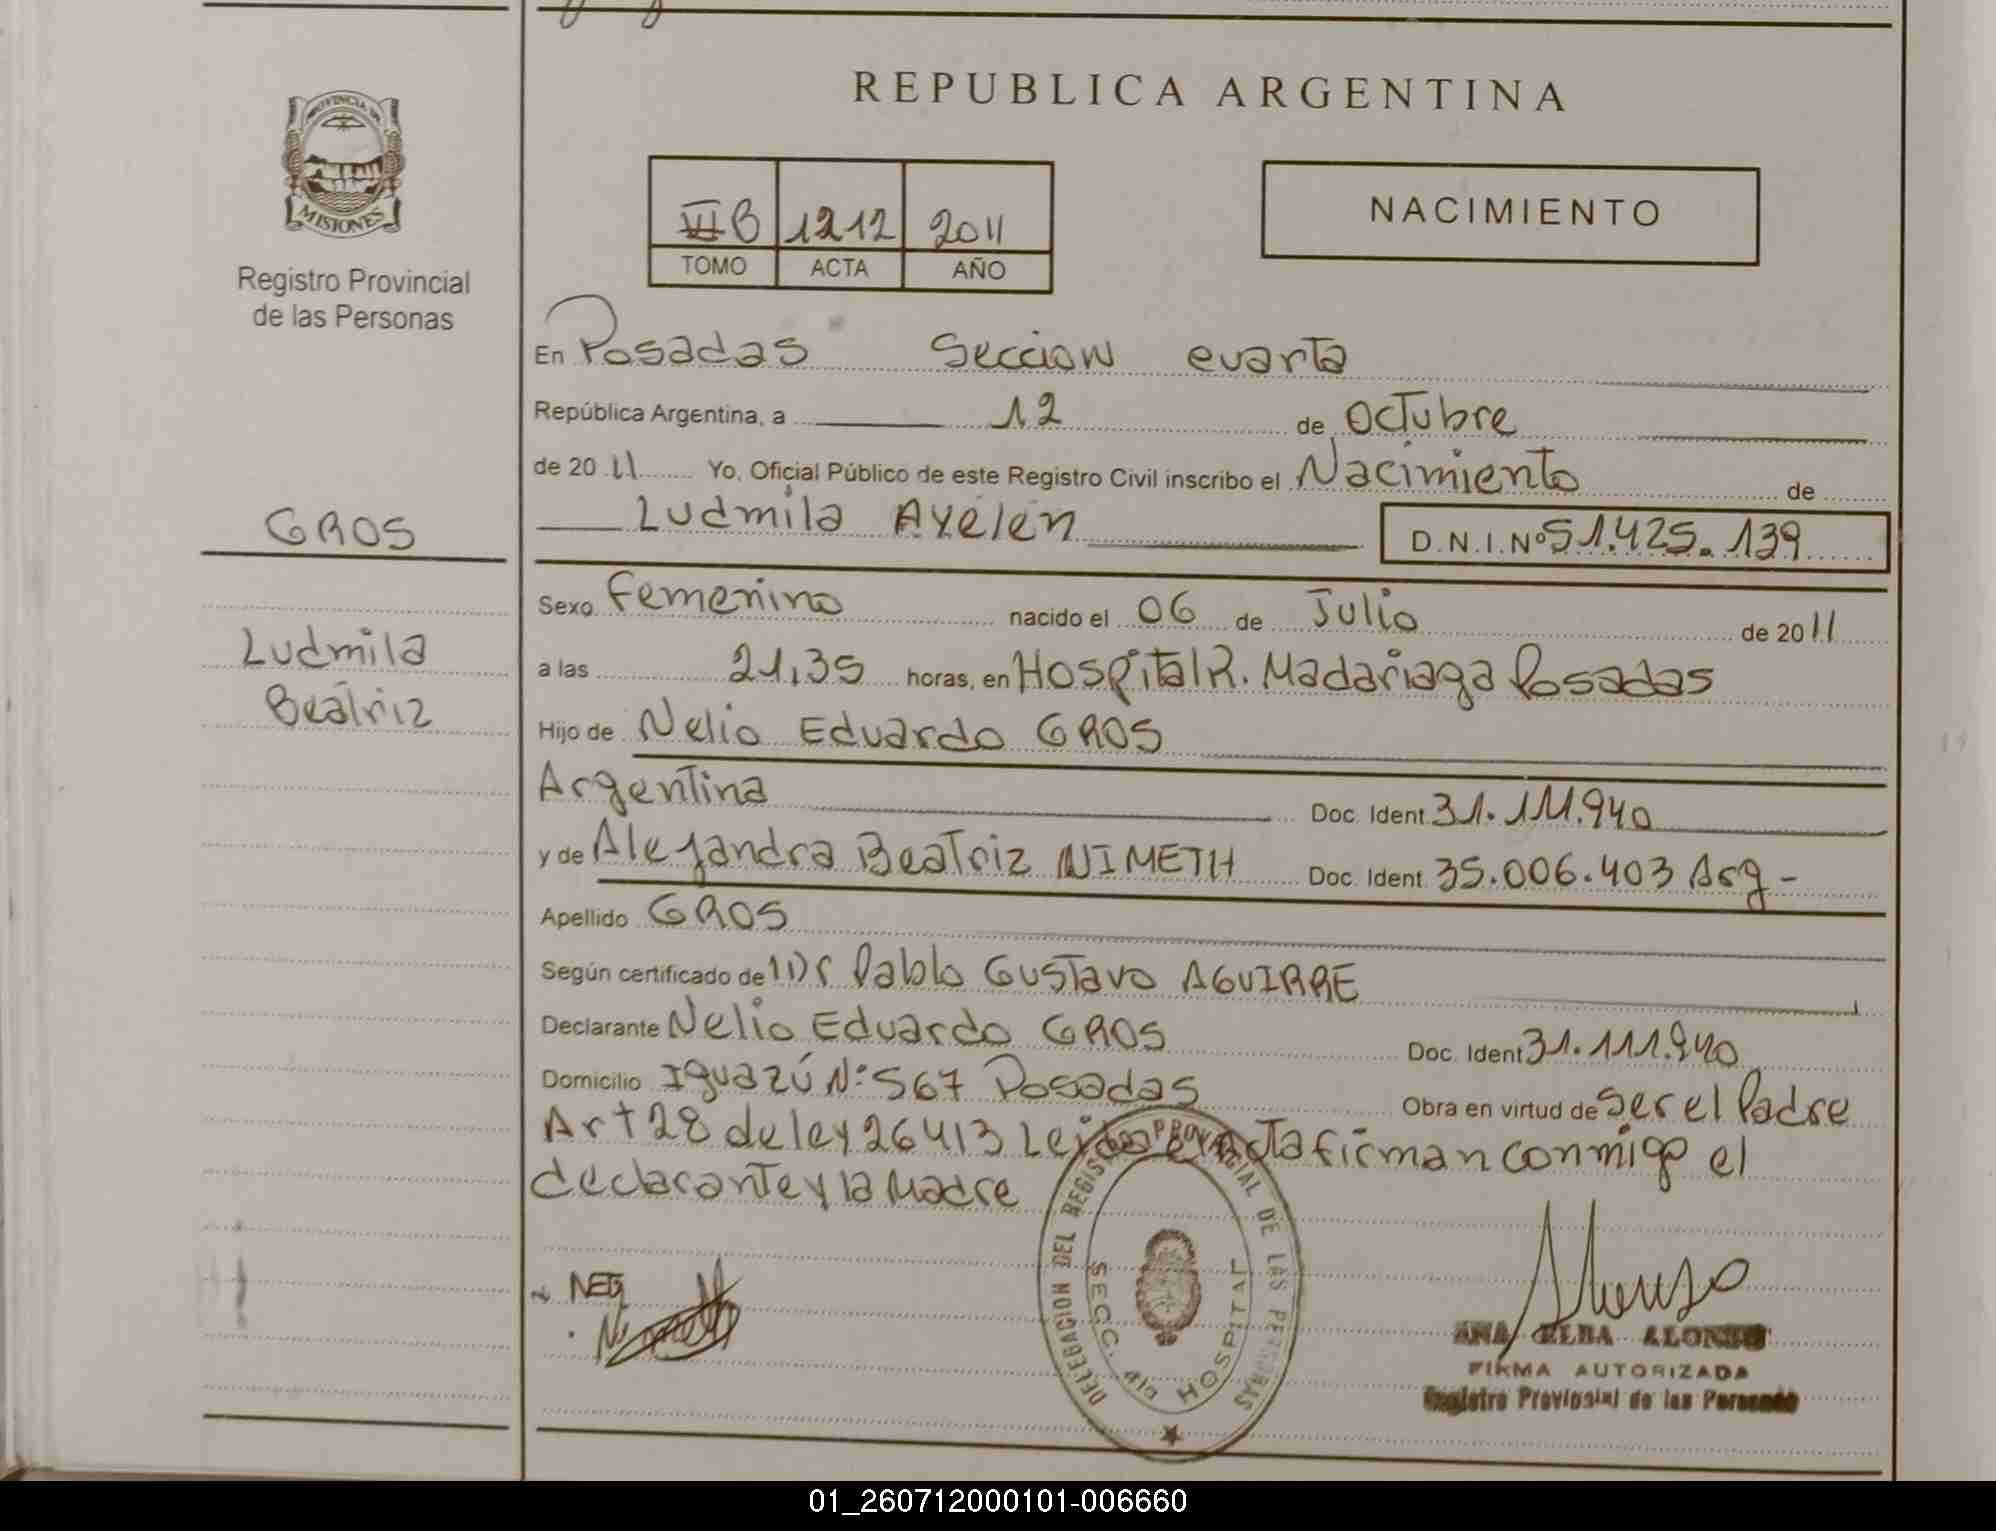 REPUBLICA ARGENTINA
PROVINCIA DE
MISIONES
Registro Provincial
de las Personas
VII B 1212 2011
TOMO ACTA AÑO
NACIMIENTO
En Posadas Seccion cuarta
República Argentina, a 12 de Octubre
de 2011 Yo, Oficial Público de este Registro Civil inscribo el Nacimiento de
GROS
Ludmila Ayelen D.N.I.Nº 51.425.139
Sexo Femenino nacido el 06 de Julio de 2011
Ludmila
Beatriz
a las 21,35 horas, en Hospital R. Madariaga Posadas
Hijo de Nelio Eduardo GROS
Argentina Doc. Ident 31.111.940
y de Alejandra Beatriz NIMETH Doc. Ident. 35.006.403 Arg -
Apellido GROS
Según certificado de Dr Pablo Gustavo AGUIRRE
Declarante Nelio Eduardo GROS Doc. Ident 31.111.940
Domicilio Iguazú Nº 567 Posadas Obra en virtud de ser el Padre
Art 28 de ley 26413 Leida el Acta firman conmigo el
declarante y la Madre
DELEGACION DEL REGISTRO PROVINCIAL DE LAS PERSONAS
SECC. 4ta HOSPITAL
ANA ELBA ALONSO
FIRMA AUTORIZADA
Registro Provincial de las Personas
01_260712000101-006660